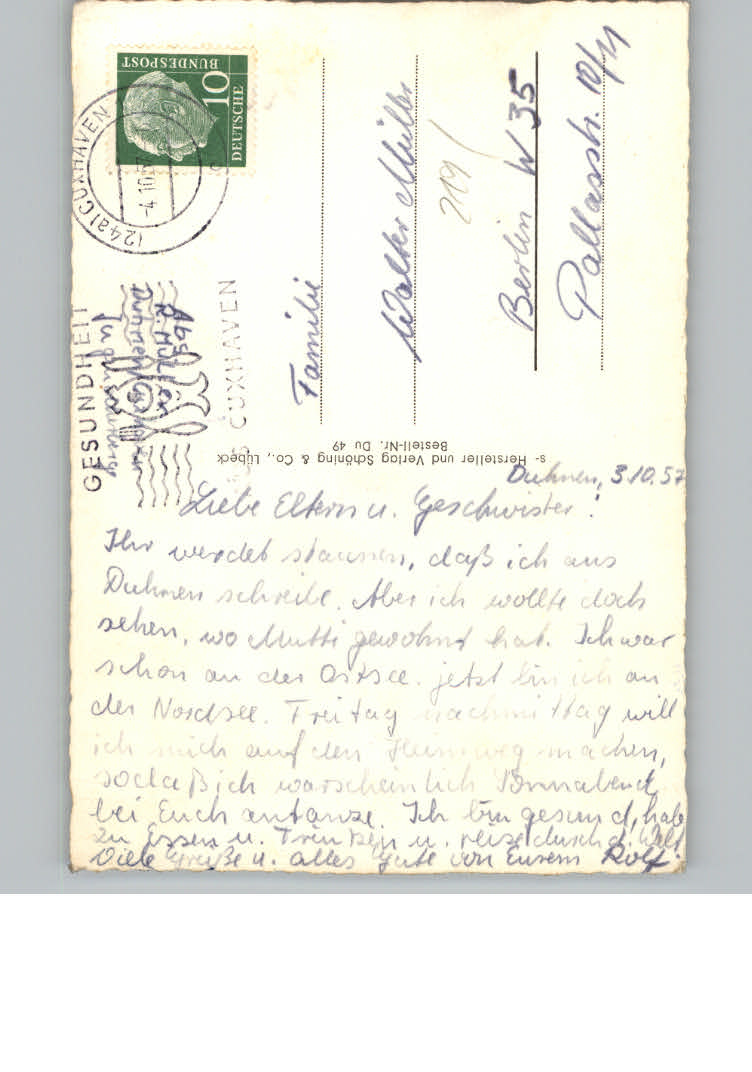 DEUTSCHE
BUNDESPOST
10
(24a) CUXHAVEN
-4.10.57
GESUNDHEIT
CUXHAVEN
Abs.
R. Müller
Duhnen
Familie
Walter Müller
219/
Berlin W 35
Pallasstr. 10/11
s- Hersteller und Verlag Schöning & Co., Lübeck
Bestell-Nr. Du 49
Duhnen, 3.10.57
Liebe Eltern u. Geschwister!
Ihr werdet staunen, daß ich aus
Duhnen schreibe. Aber ich wollte doch
sehen, wo Mutti gewohnt hat. Ich war
schon an der Ostsee. jetzt bin ich an
der Nordsee. Freitag nachmittag will
ich mich auf den Heimweg machen,
sodaß ich warscheinlich Sonnabend
bei Euch antanze. Ich bin gesund, habe
zu Essen u. Trinken u. reise durch d. Welt
Viele Grüße u. alles Gute von Eurem Rolf.